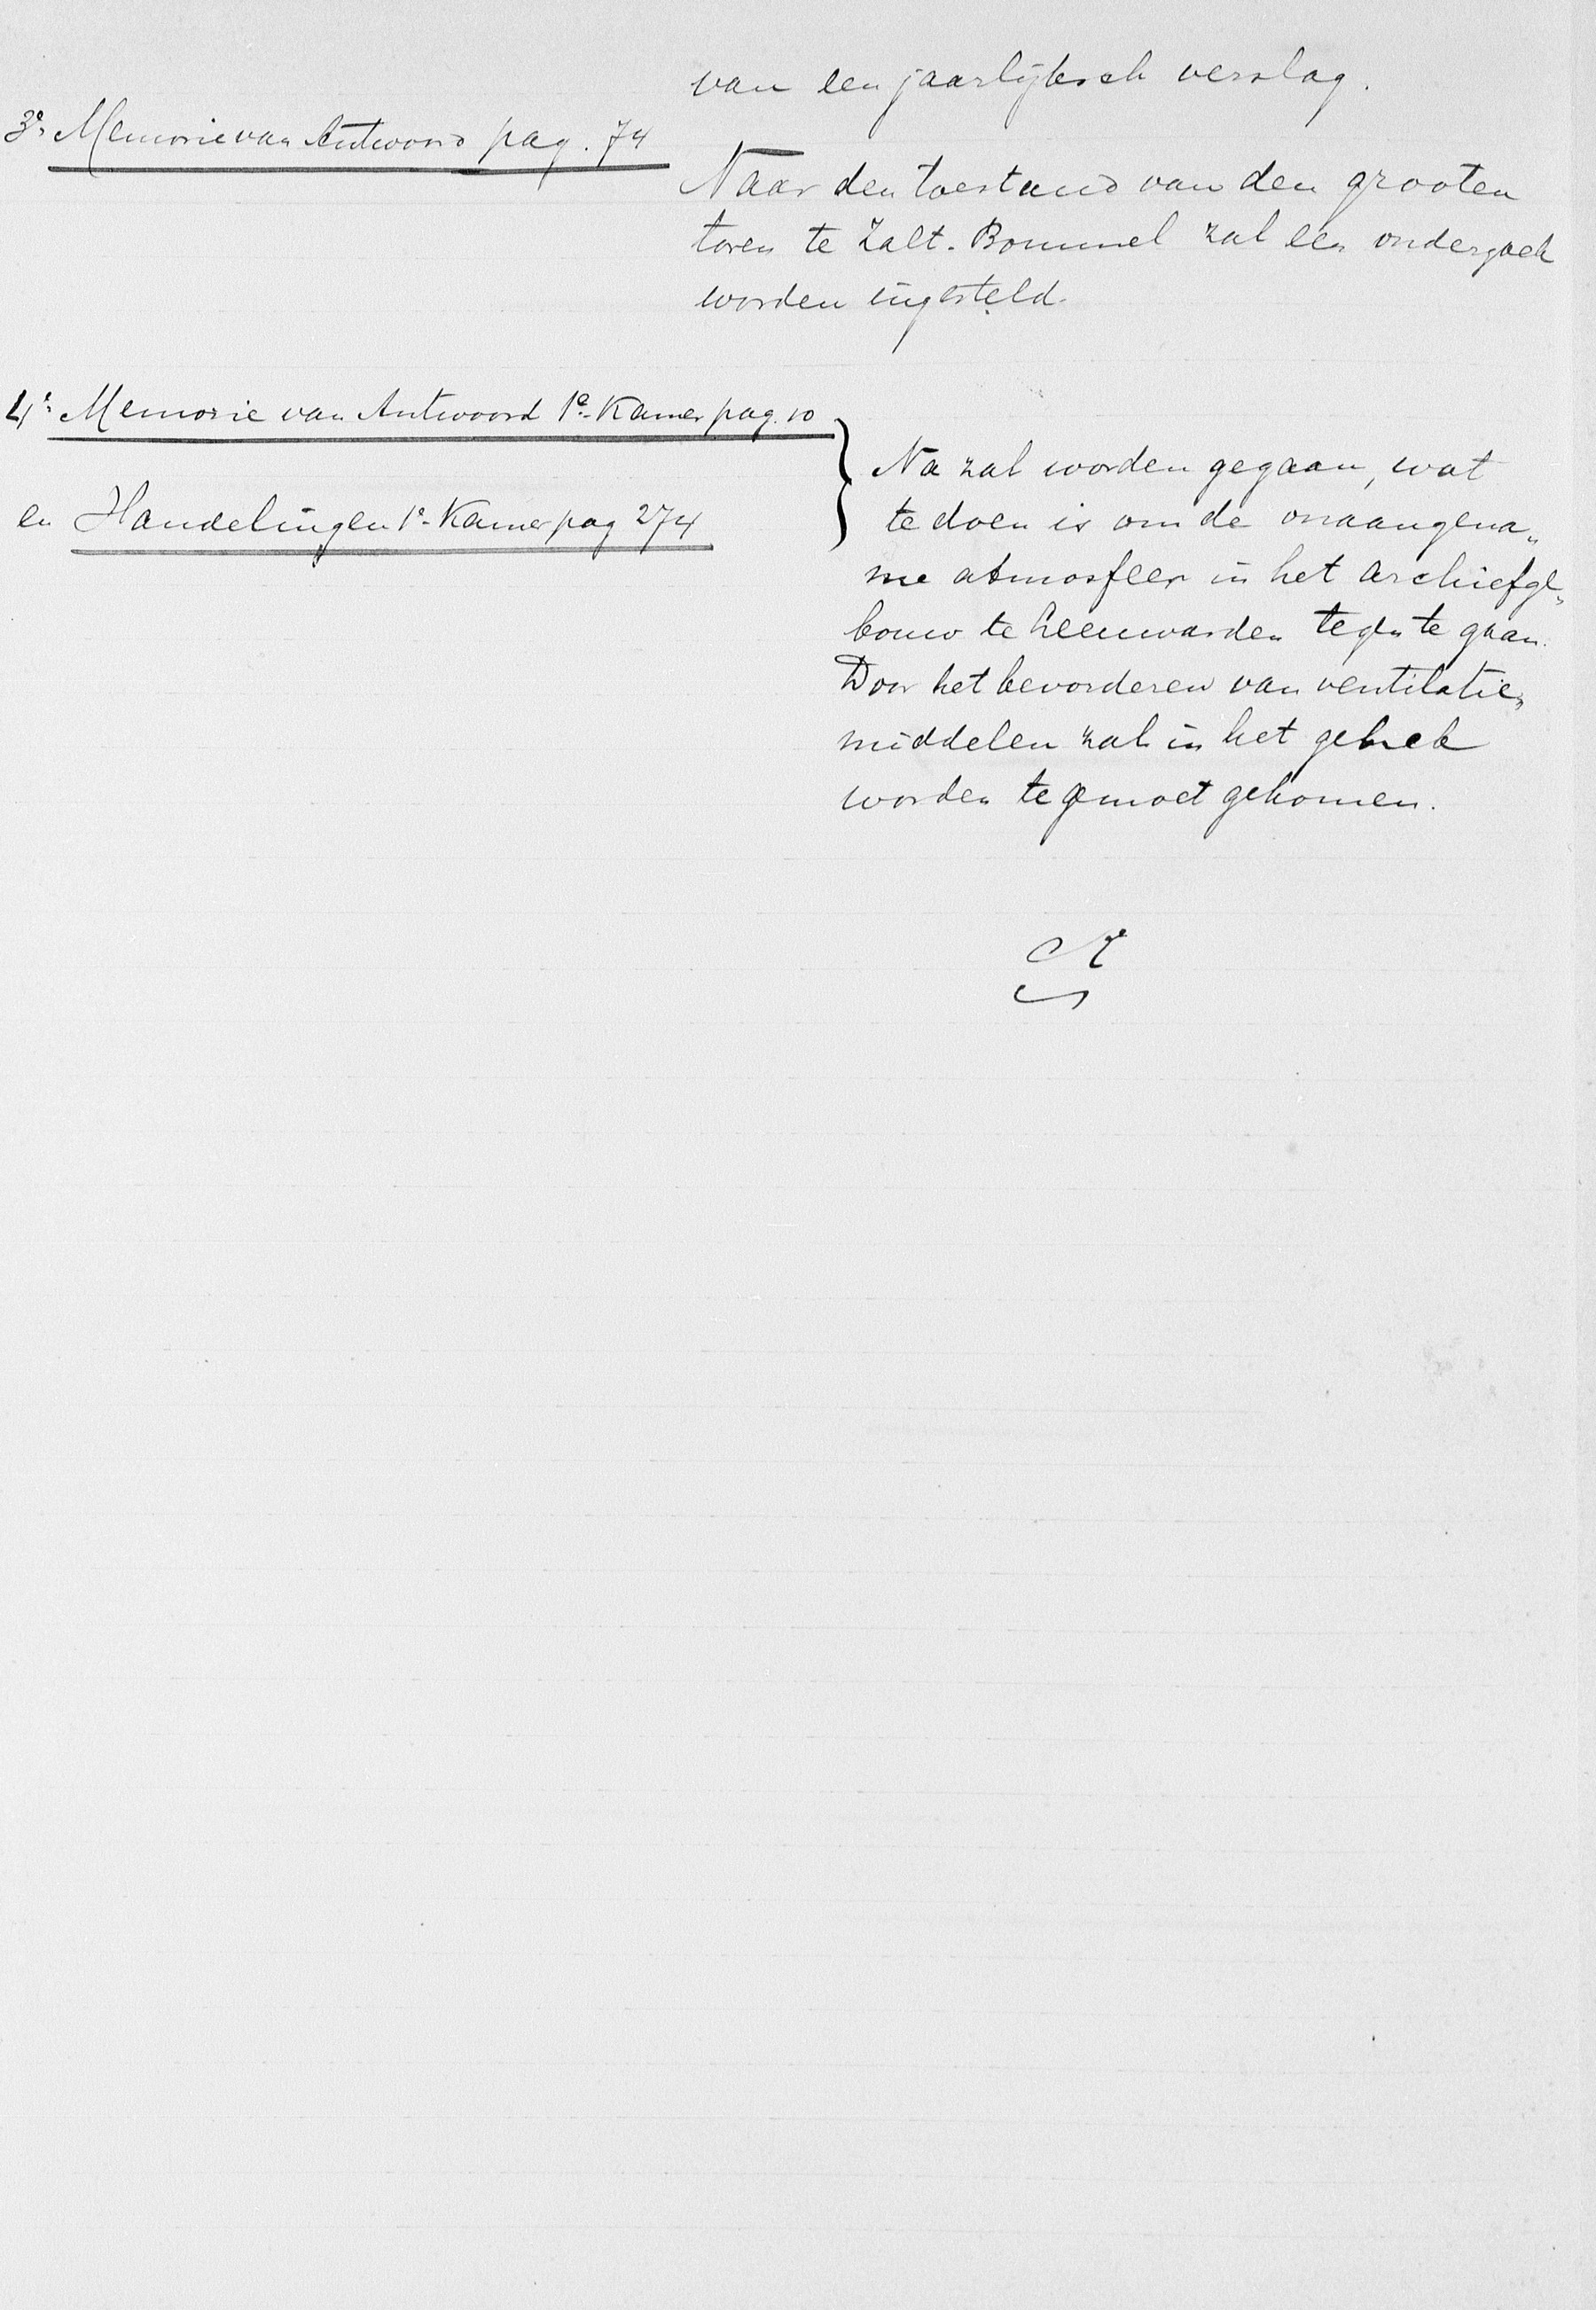 van een jaarlijksch verslag.
3e. Memorie van Antwoord pag. 74
Naar den toestand van den grooten
toren te Zalt-Bommel zal een onderzoek
worden ingesteld.
4e. Memorie van Antwoord 1e Kamer pag. 10
en Handelingen 1e Kamer pag 274
Na zal worden gegaan, wat
te doen is om de onaangena„
me atmosfeer in het archiefge„
bouw te Leeuwarden tegen te gaan.
Door het bevorderen van ventilatie„
middelen zal in het gebrek
worden tegemoet gekomen.